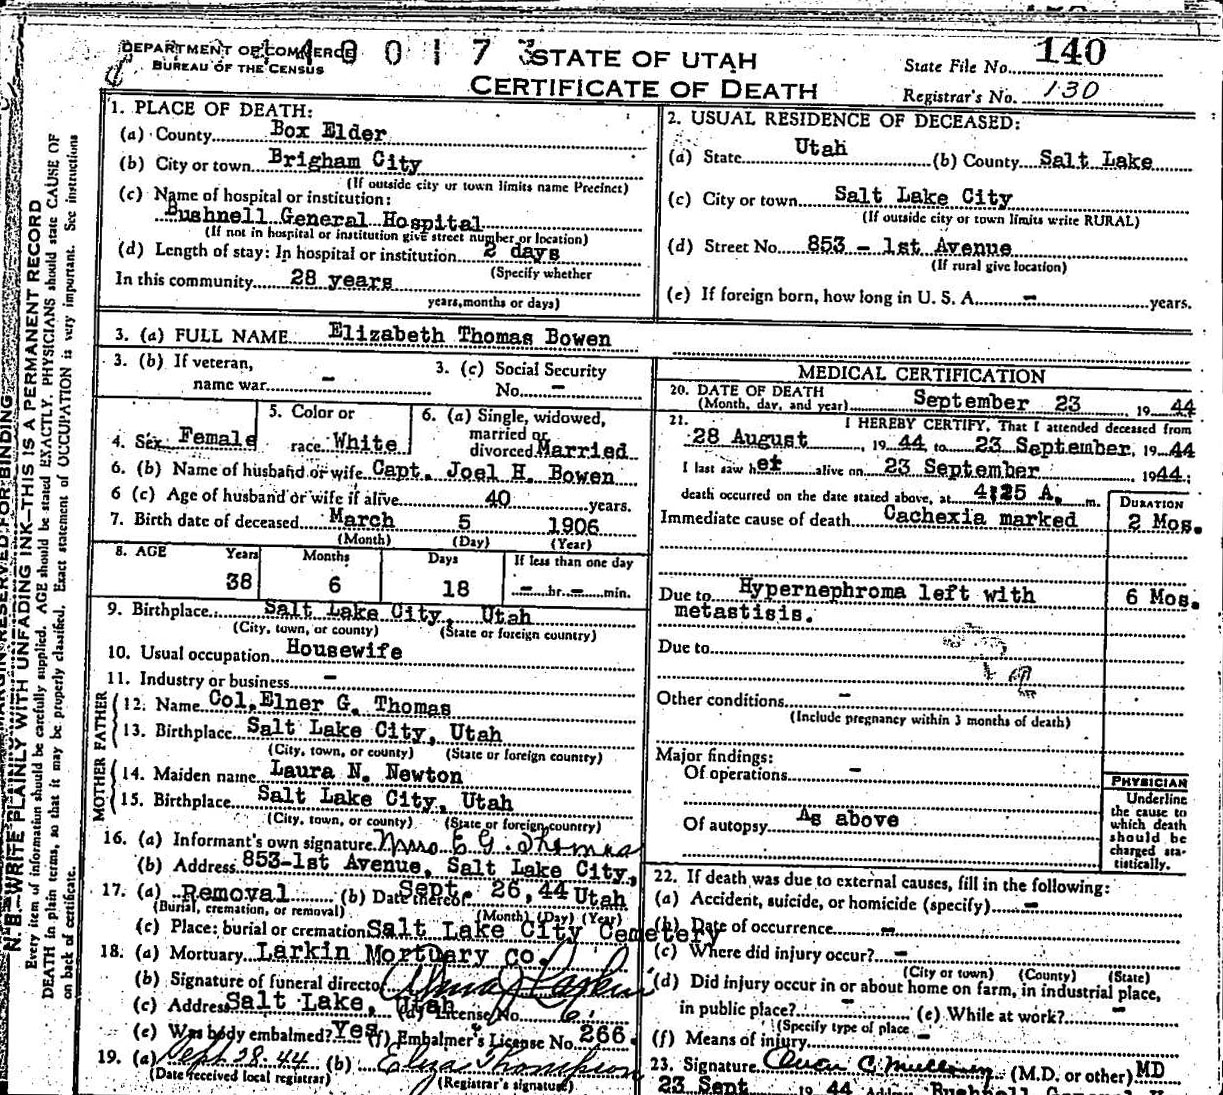 DEPARTMENT OF COMMERCE
BUREAU OF THE CENSUS
0 0 1 7
STATE OF UTAH
CERTIFICATE OF DEATH
State File No. 140
Registrar's No. 130
N. B.—WRITE PLAINLY WITH UNFADING INK—THIS IS A PERMANENT RECORD
Every item of information should be carefully supplied. AGE should be stated EXACTLY. PHYSICIANS should state CAUSE OF
DEATH in plain terms, so that it may be properly classified. Exact statement of OCCUPATION is very important. See instructions
on back of certificate.
1. PLACE OF DEATH:
(a) County Box Elder
(b) City or town Brigham City
(If outside city or town limits name Precinct)
(c) Name of hospital or institution:
Bushnell General Hospital
(If not in hospital or institution give street number or location)
(d) Length of stay: In hospital or institution 2 days
(Specify whether
In this community 28 years
years, months or days)
2. USUAL RESIDENCE OF DECEASED:
(a) State Utah (b) County Salt Lake
(c) City or town Salt Lake City
(If outside city or town limits write RURAL)
(d) Street No. 853 - 1st Avenue
(If rural give location)
(e) If foreign born, how long in U. S. A. - years.
3. (a) FULL NAME Elizabeth Thomas Bowen
3. (b) If veteran,
name war -
3. (c) Social Security
No. -
4. Sex Female
5. Color or
race White
6. (a) Single, widowed,
married or
divorced Married
6. (b) Name of husband or wife Capt. Joel H. Bowen
6 (c) Age of husband or wife if alive 40 years.
7. Birth date of deceased March 5 1906
(Month) (Day) (Year)
8. AGE Years Months Days If less than one day
38 6 18 - hr. - min.
9. Birthplace: Salt Lake City, Utah
(City, town, or county) (State or foreign country)
10. Usual occupation Housewife
11. Industry or business -
FATHER
12. Name Col. Elner G. Thomas
13. Birthplace Salt Lake City, Utah
(City, town, or county) (State or foreign country)
MOTHER
14. Maiden name Laura N. Newton
15. Birthplace Salt Lake City, Utah
(City, town, or county) (State or foreign country)
16. (a) Informant's own signature Mrs E G. Thomas
(b) Address 853-1st Avenue, Salt Lake City, Utah
17. (a) Removal (b) Date thereof Sept. 26, 44
(Burial, cremation, or removal) (Month) (Day) (Year)
(c) Place: burial or cremation Salt Lake City Cemetery
18. (a) Mortuary Larkin Mortuary Co.
(b) Signature of funeral director Larkin
(c) Address Salt Lake, Utah (d) License No.
(e) Was body embalmed? Yes (f) Embalmer's License No. 266.
19. (a) Sept 28-44 (b) Eliza Thompson
(Date received local registrar) (Registrar's signature)
MEDICAL CERTIFICATION
20. DATE OF DEATH
(Month, day, and year) September 23, 19 44
21. I HEREBY CERTIFY, That I attended deceased from
28 August, 19 44 to 23 September, 19 44
I last saw her alive on 23 September 1944;
death occurred on the date stated above, at 4:25 A. m.
DURATION
Immediate cause of death Cachexia marked 2 Mos.
Due to Hypernephroma left with 6 Mos.
metastisis.
Due to
Other conditions -
(Include pregnancy within 3 months of death)
Major findings:
Of operations -
Of autopsy As above
PHYSICIAN
Underline
the cause to
which death
should be
charged sta-
tistically.
22. If death was due to external causes, fill in the following:
(a) Accident, suicide, or homicide (specify) -
(b) Date of occurrence -
(c) Where did injury occur? -
(City or town) (County) (State)
(d) Did injury occur in or about home on farm, in industrial place,
in public place? - (e) While at work? -
(Specify type of place
(f) Means of injury -
23. Signature (M.D. or other) MD
23 Sept 19 44 Address Bushnell General H